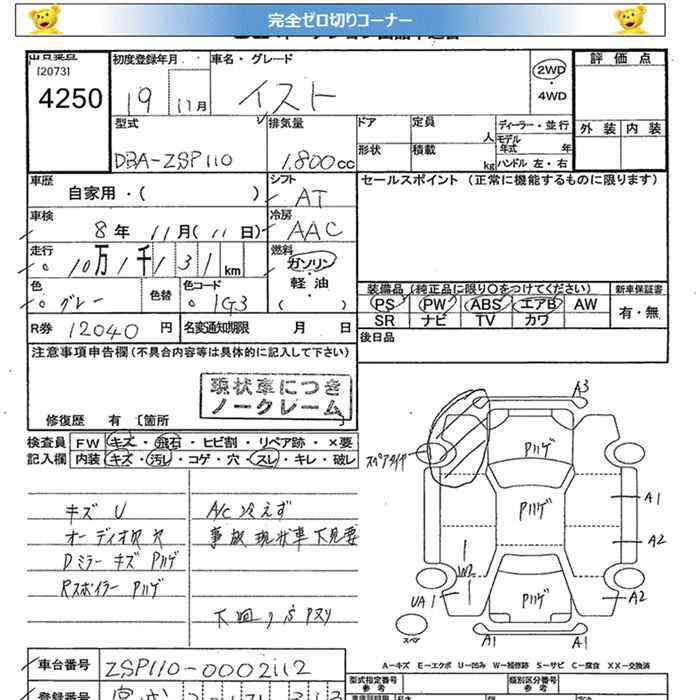 完全ゼロ切りコーナー
出品番号
[2073]
4250
初度登録年月
19 11月
車名・グレード
イスト
2WD
・
4WD
評価点
外装 内装
型式
DBA-ZSP110
排気量
1,800cc
ドア
定員 人
ディーラー・並行
モデル年式 年
形状
積載 kg
ハンドル 左・右
車歴
自家用・( )
シフト
AT
セールスポイント (正常に機能するものに限ります)
車検
8年 11月(11日)
冷房
AAC
走行
10万1千131km
燃料
ガソリン・軽油・( )
色
グレー
色替
色コード
1G3
装備品(純正品に限り○をつけてください)
新車保証書
PS PW ABS エアB AW
有・無
SR ナビ TV カワ
R券 12040円
名変通知期限 月 日
後日品
注意事項申告欄(不具合内容等は具体的に記入して下さい)
現状車につき
ノークレーム
修復歴 有 [箇所 ]
検査員 FW キズ・飛石・ヒビ割・リペア跡・×要
記入欄 内装 キズ・汚レ・コゲ・穴・スレ・キレ・破レ
キズ U
オーディオ欠 穴
Dミラー キズ Pハゲ
Rスポイラー Pハゲ
A/C 冷えず
事故現状車 下見要
下回り
A3
スペアタイヤ
Pハゲ
Pハゲ
A1
A2
W2
UA1
Pハゲ
A2
スペア
A1
A1
A-キズ E-エクボ U-凹み W-補修跡 S-サビ C-腐食 XX-交換済
車台番号
ZSP110-0002112
型式指定番号
参考
類別区分番号
参考
登録番号